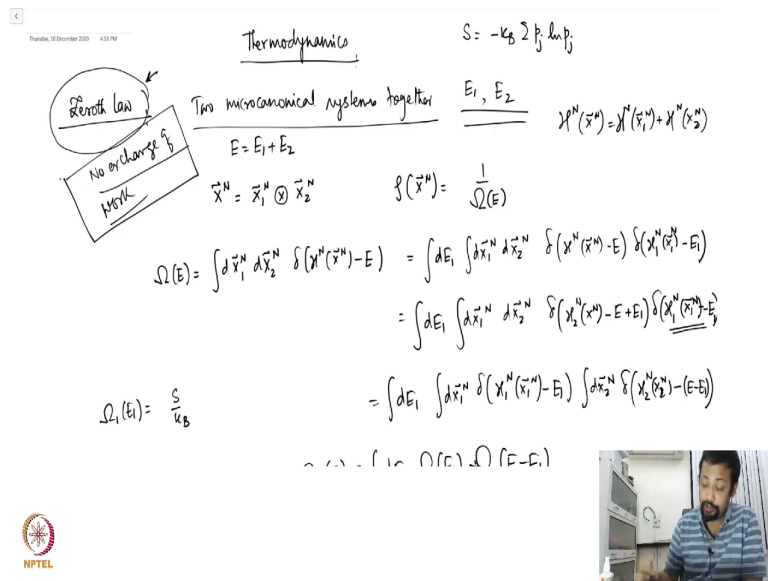 Thursday, 10 December 2020 4:53 PM
Thermodynamics
S = -k_B Σ p_j ln p_j
Zeroth law
Two microcanonical systems together E₁, E₂
ℋᴺ(x⃗ᴺ) = ℋᴺ(x⃗₁ᴺ) + ℋᴺ(x₂ᴺ)
No exchange of
work
E = E₁ + E₂
x⃗ᴺ = x⃗₁ᴺ ⊗ x⃗₂ᴺ
ρ(x⃗ᴺ) = 1/Ω(E)
Ω(E) = ∫dx⃗₁ᴺ dx⃗₂ᴺ δ(ℋᴺ(x⃗ᴺ) - E) = ∫dE₁ ∫dx⃗₁ᴺ dx⃗₂ᴺ δ(ℋᴺ(x⃗ᴺ) - E) δ(ℋ₁ᴺ(x⃗₁ᴺ) - E₁)
= ∫dE₁ ∫dx⃗₁ᴺ dx⃗₂ᴺ δ(ℋ₂ᴺ(xᴺ) - E + E₁) δ(ℋ₁ᴺ(x⃗₁ᴺ) - E₁)
= ∫dE₁ ∫dx⃗₁ᴺ δ(ℋ₁ᴺ(x⃗₁ᴺ) - E₁) ∫dx⃗₂ᴺ δ(ℋ₂ᴺ(x⃗₂ᴺ) - (E - E₁))
Ω₁(E₁) = S/k_B
NPTEL